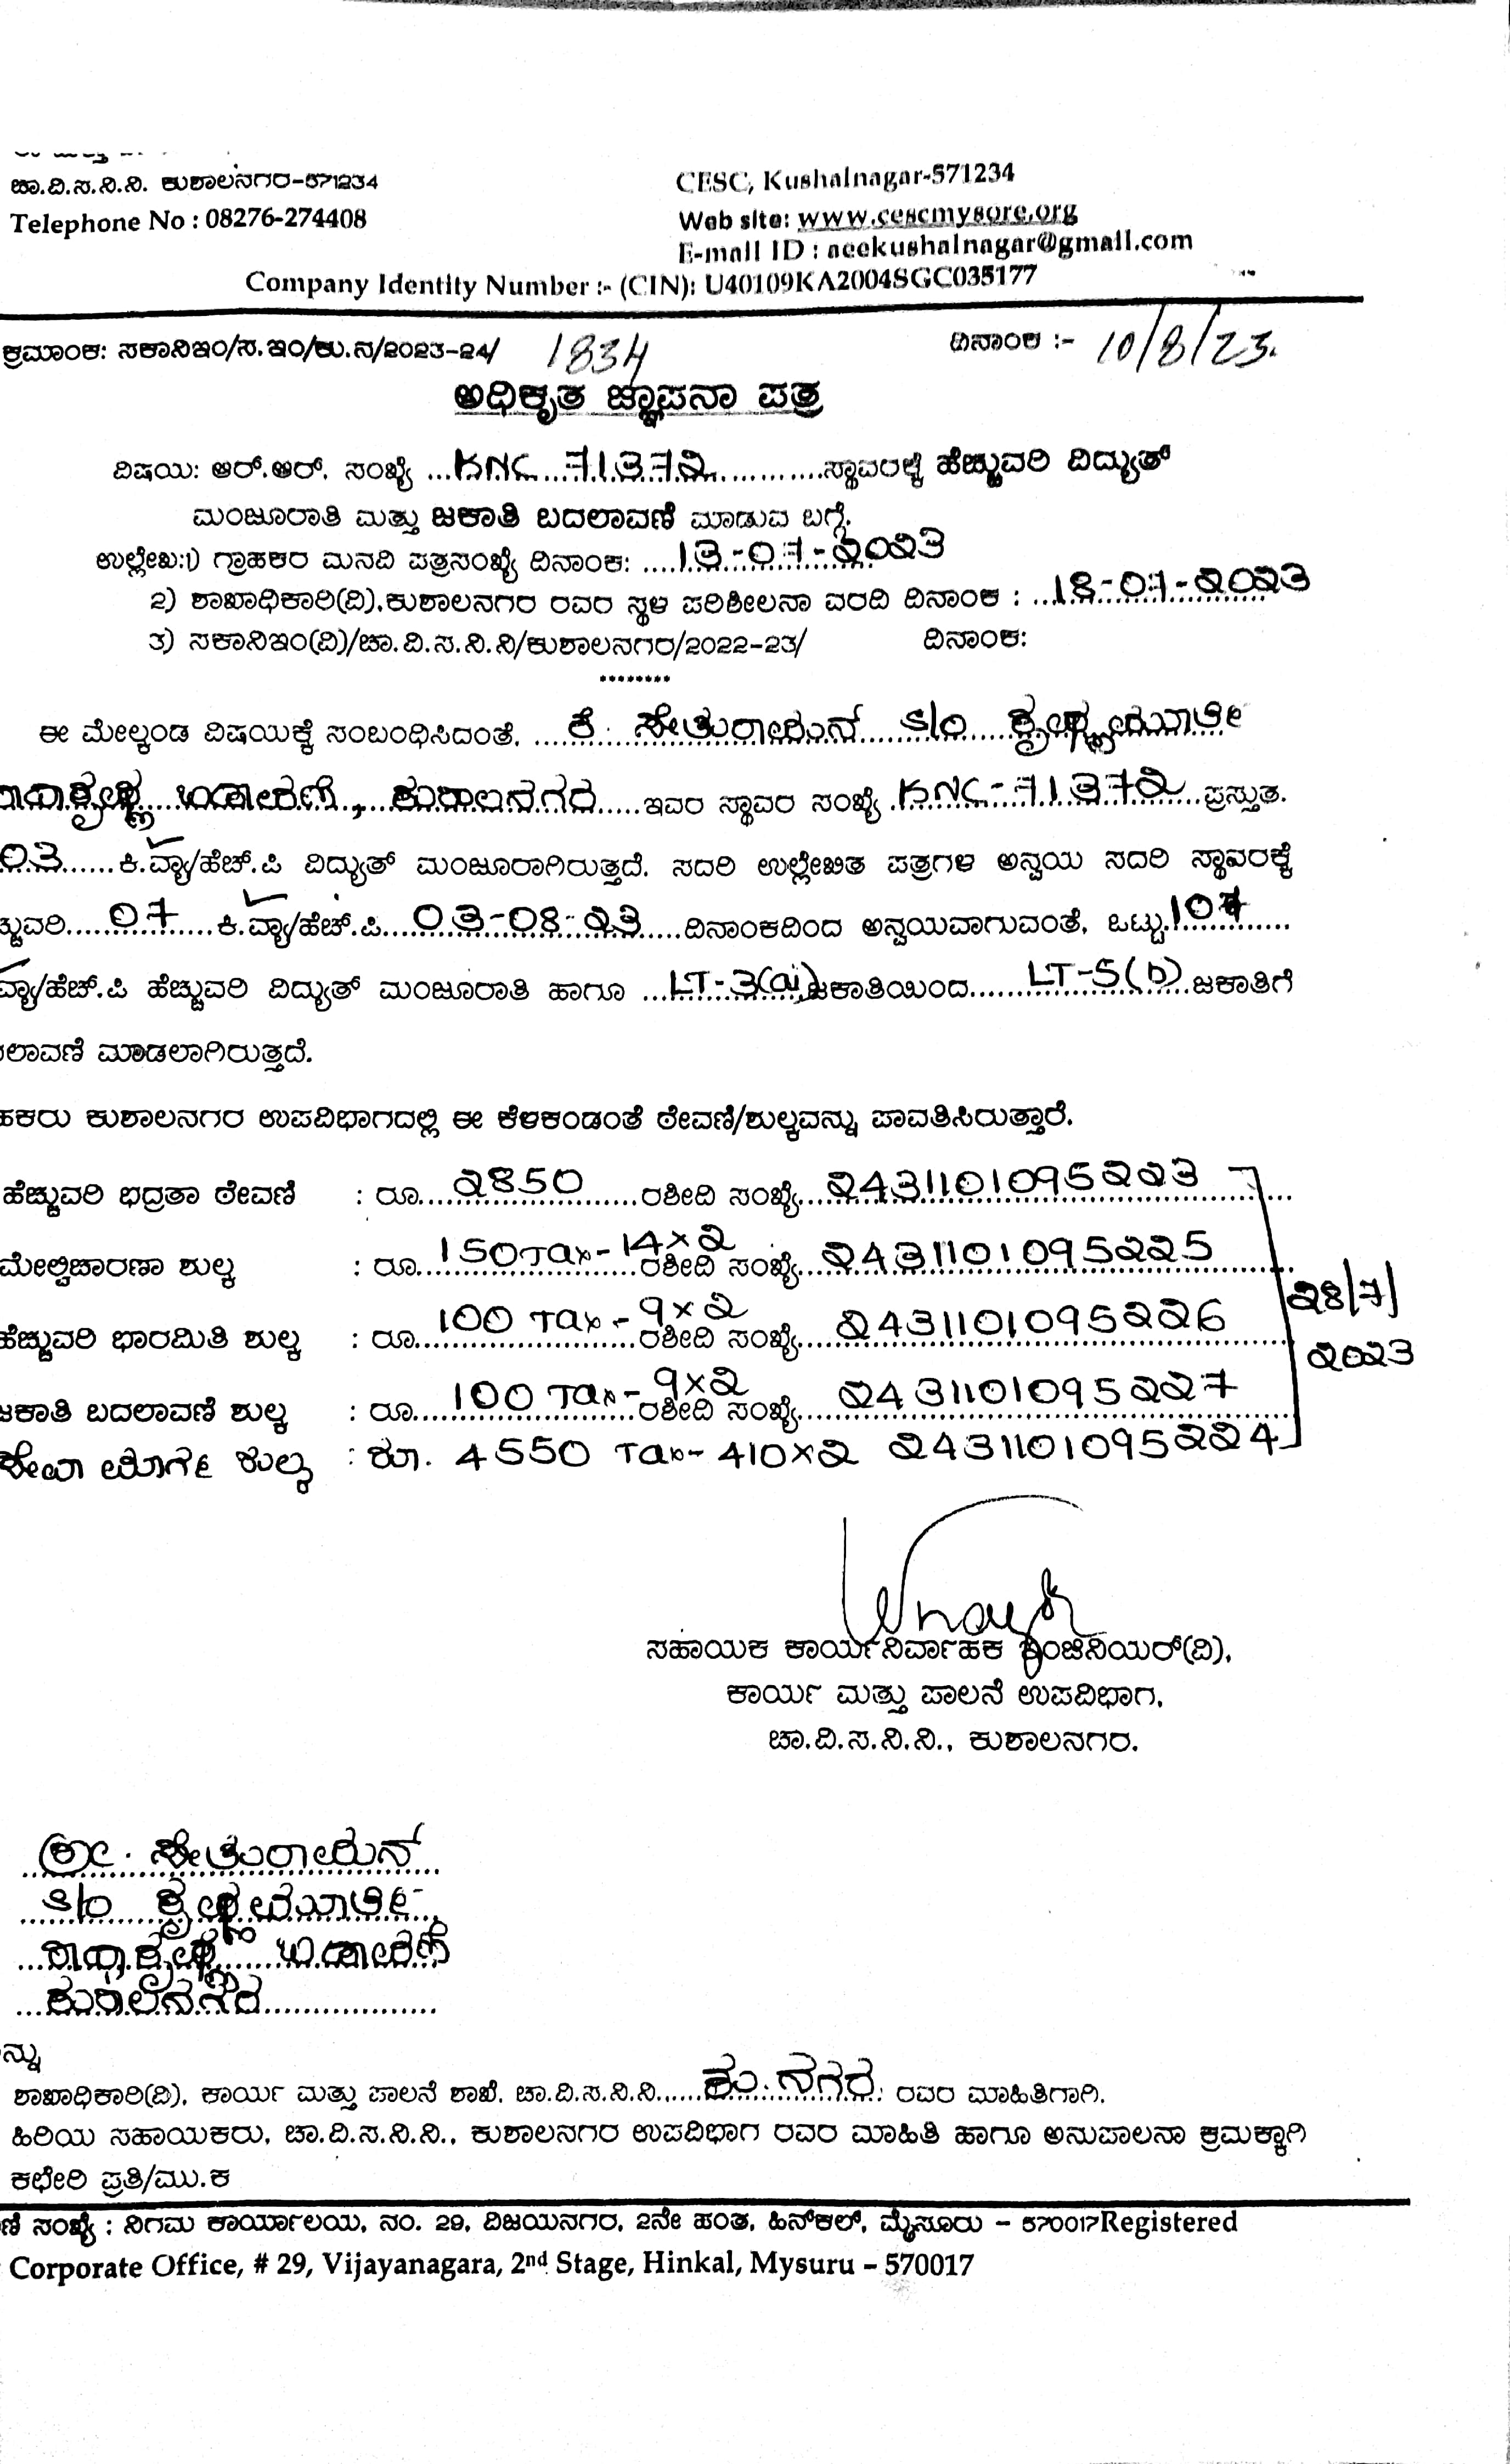 ಚಾ.ವಿ.ಸ.ನಿ.ನಿ. ಕುಶಾಲನಗರ-571234
CESC, Kushalnagar-571234
Telephone No : 08276-274408
Web site: www.cescmysore.org
E-mail ID : aeekushalnagar@gmail.com
Company Identity Number :- (CIN): U40109KA2004SGC035177
ಕ್ರಮಾಂಕ: ಸಕಾನಿಇಂ/ಸ.ಇಂ/ಕು.ನ/2023-24/ 1834 ದಿನಾಂಕ :- 10/8/23.
ಅಧಿಕೃತ ಜ್ಞಾಪನಾ ಪತ್ರ
ವಿಷಯ: ಆರ್.ಆರ್. ಸಂಖ್ಯೆ ...KNC 71372..........ಸ್ಥಾವರಕ್ಕೆ ಹೆಚ್ಚುವರಿ ವಿದ್ಯುತ್
ಮಂಜೂರಾತಿ ಮತ್ತು ಜಕಾತಿ ಬದಲಾವಣೆ ಮಾಡುವ ಬಗ್ಗೆ.
ಉಲ್ಲೇಖ:1) ಗ್ರಾಹಕರ ಮನವಿ ಪತ್ರಸಂಖ್ಯೆ ದಿನಾಂಕ: ....13-07-2023
2) ಶಾಖಾಧಿಕಾರಿ(ವಿ).ಕುಶಾಲನಗರ ರವರ ಸ್ಥಳ ಪರಿಶೀಲನಾ ವರದಿ ದಿನಾಂಕ : ...18-07-2023
3) ಸಕಾನಿಇಂ(ವಿ)/ಚಾ.ವಿ.ಸ.ನಿ.ನಿ/ಕುಶಾಲನಗರ/2022-23/ ದಿನಾಂಕ:
********
ಈ ಮೇಲ್ಕಂಡ ವಿಷಯಕ್ಕೆ ಸಂಬಂಧಿಸಿದಂತೆ. ....ಕೆ. ಸೇತುರಾಮನ್ S/o ಕೃಷ್ಣಮೂರ್ತಿ
ಬಡಾವಣೆ, ಕುಶಾಲನಗರ.....ಇವರ ಸ್ಥಾವರ ಸಂಖ್ಯೆ.KNC-71372..ಪ್ರಸ್ತುತ.
03......ಕಿ.ವ್ಯಾ/ಹೆಚ್.ಪಿ ವಿದ್ಯುತ್ ಮಂಜೂರಾಗಿರುತ್ತದೆ. ಸದರಿ ಉಲ್ಲೇಖಿತ ಪತ್ರಗಳ ಅನ್ವಯ ಸದರಿ ಸ್ಥಾವರಕ್ಕೆ
ಚ್ಚುವರಿ.....07....ಕಿ.ವ್ಯಾ/ಹೆಚ್.ಪಿ....03-08-23.....ದಿನಾಂಕದಿಂದ ಅನ್ವಯವಾಗುವಂತೆ, ಒಟ್ಟು.107............
ವ್ಯಾ/ಹೆಚ್.ಪಿ ಹೆಚ್ಚುವರಿ ವಿದ್ಯುತ್ ಮಂಜೂರಾತಿ ಹಾಗೂ ...LT-3(a)ಜಕಾತಿಯಿಂದ......LT-5(b)..ಜಕಾತಿಗೆ
ಲಾವಣೆ ಮಾಡಲಾಗಿರುತ್ತದೆ.
ಹಕರು ಕುಶಾಲನಗರ ಉಪವಿಭಾಗದಲ್ಲಿ ಈ ಕೆಳಕಂಡಂತೆ ಠೇವಣಿ/ಶುಲ್ಕವನ್ನು ಪಾವತಿಸಿರುತ್ತಾರೆ.
ಹೆಚ್ಚುವರಿ ಭದ್ರತಾ ಠೇವಣಿ : ರೂ....2850......ರಶೀದಿ ಸಂಖ್ಯೆ...2431101095223
ಮೇಲ್ವಿಚಾರಣಾ ಶುಲ್ಕ : ರೂ..150 Tax-14×2 ರಶೀದಿ ಸಂಖ್ಯೆ..2431101095225
ಹೆಚ್ಚುವರಿ ಭಾರಮಿತಿ ಶುಲ್ಕ : ರೂ..100 Tax-9×2 ರಶೀದಿ ಸಂಖ್ಯೆ...2431101095226
28/7/2023
ಜಕಾತಿ ಬದಲಾವಣೆ ಶುಲ್ಕ : ರೂ....100 Tax-9×2 ರಶೀದಿ ಸಂಖ್ಯೆ...2431101095227
ಸೇವಾ ಮಾರ್ಗ ಶುಲ್ಕ : ರೂ. 4550 Tax-410×2 2431101095224
ಸಹಾಯಕ ಕಾರ್ಯನಿರ್ವಾಹಕ ಇಂಜಿನಿಯರ್(ವಿ),
ಕಾರ್ಯ ಮತ್ತು ಪಾಲನೆ ಉಪವಿಭಾಗ,
ಚಾ.ವಿ.ಸ.ನಿ.ನಿ., ಕುಶಾಲನಗರ.
ಶ್ರೀ. ಸೇತುರಾಮನ್
S/o ಕೃಷ್ಣಮೂರ್ತಿ
ಬಡಾವಣೆ
ಕುಶಾಲನಗರ
ನ್ನು
ಶಾಖಾಧಿಕಾರಿ(ವಿ), ಕಾರ್ಯ ಮತ್ತು ಪಾಲನೆ ಶಾಖೆ, ಚಾ.ವಿ.ಸ.ನಿ.ನಿ......ಕು.ನಗರ. ರವರ ಮಾಹಿತಿಗಾಗಿ.
ಹಿರಿಯ ಸಹಾಯಕರು, ಚಾ.ವಿ.ಸ.ನಿ.ನಿ., ಕುಶಾಲನಗರ ಉಪವಿಭಾಗ ರವರ ಮಾಹಿತಿ ಹಾಗೂ ಅನುಪಾಲನಾ ಕ್ರಮಕ್ಕಾಗಿ
ಕಛೇರಿ ಪ್ರತಿ/ಮು.ಕ
ಣಿ ಸಂಖ್ಯೆ : ನಿಗಮ ಕಾರ್ಯಾಲಯ, ನಂ. 29, ವಿಜಯನಗರ, 2ನೇ ಹಂತ, ಹಿನ್‌ಕಲ್, ಮೈಸೂರು – 570017Registered
Corporate Office, # 29, Vijayanagara, 2nd Stage, Hinkal, Mysuru – 570017